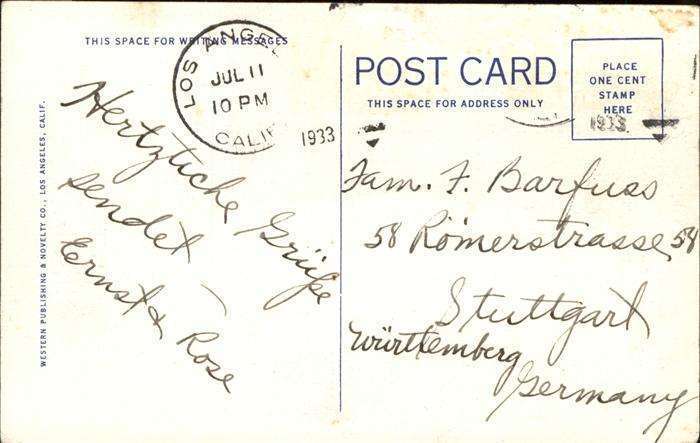 THIS SPACE FOR WRITING MESSAGES
LOS ANGELES
JUL 11
10 PM
CALIF
1933
Hertzliche Grüße
sendet —
Ernst & Rose
WESTERN PUBLISHING & NOVELTY CO., LOS ANGELES, CALIF.
POST CARD
THIS SPACE FOR ADDRESS ONLY
PLACE
ONE CENT
STAMP
HERE
1933
Fam. F. Barfuss
58 Römerstrasse 58
Stuttgart
Württemberg
Germany